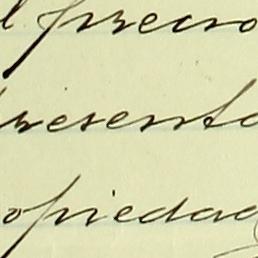 l precio
presenta
opiedad